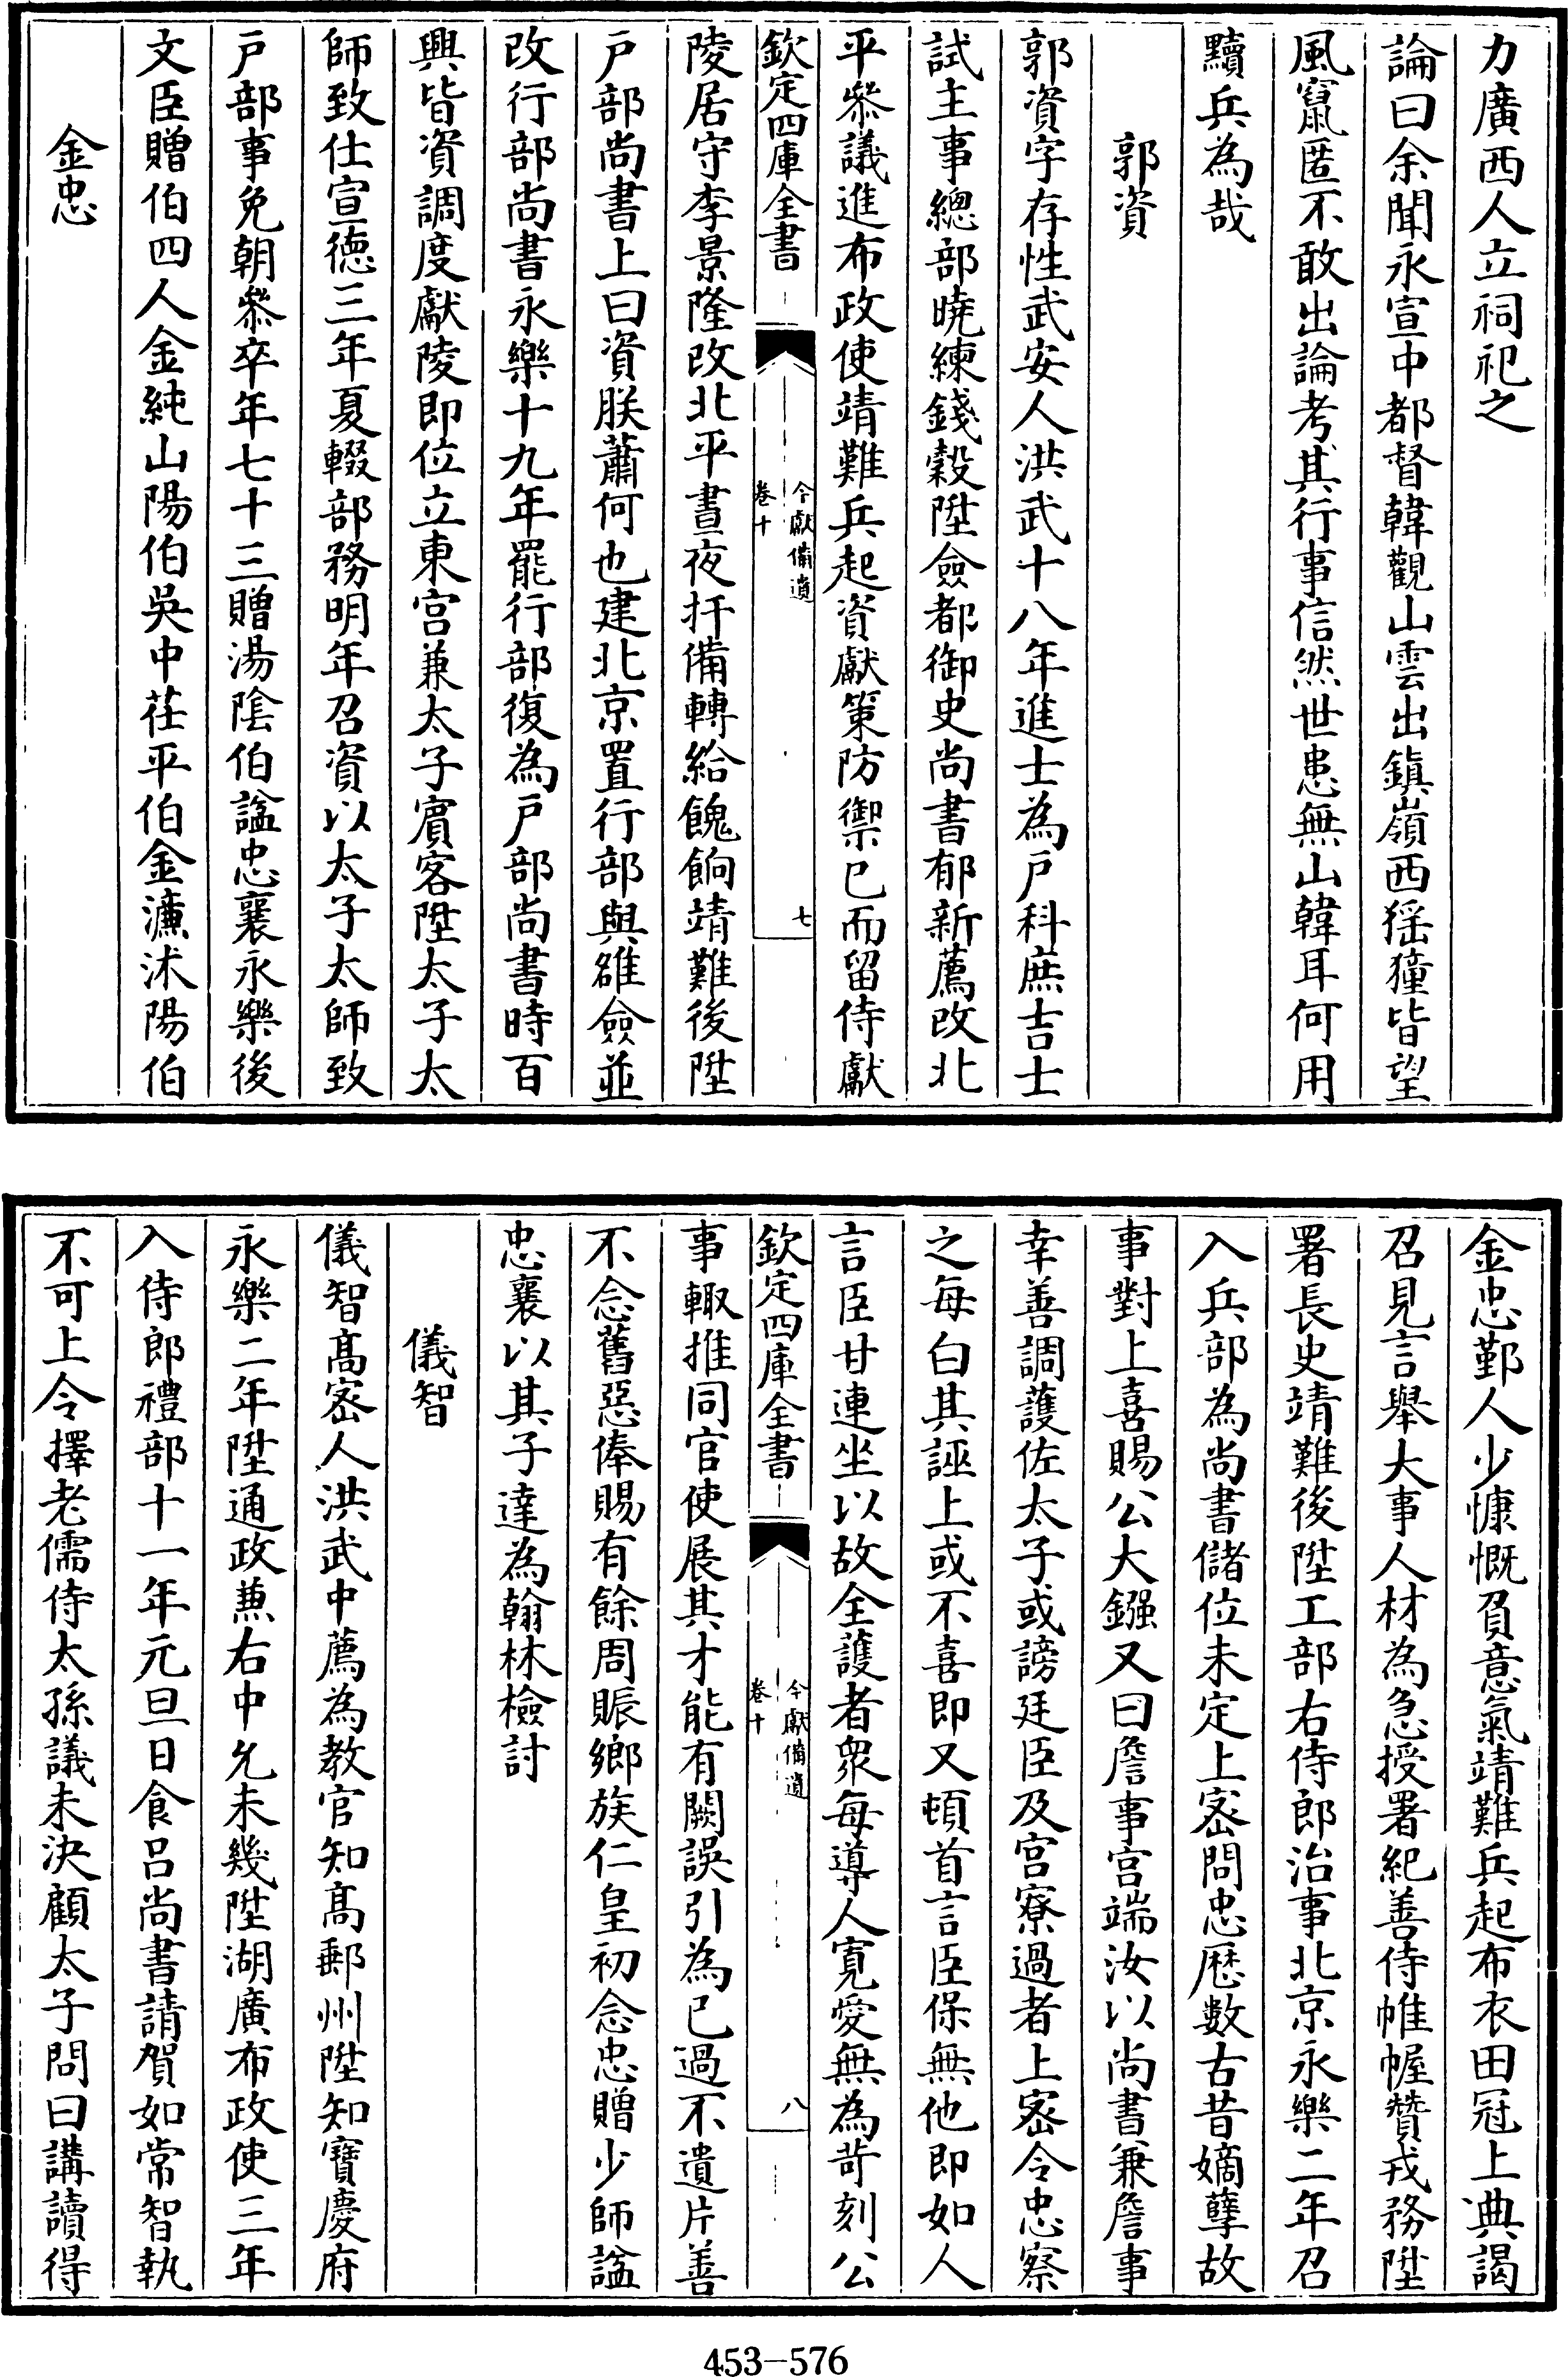 力廣西人立祠祀之
論曰余聞永宣中都督韓觀山雲出鎮嶺西猺獞皆望
風竄匿不敢出論考其行事信然世患無山韓耳何用
黷兵為哉
郭資
郭資字存性武安人洪武十八年進士為戶科庶吉士
試主事總部曉練錢穀陞僉都御史尚書郁新薦改北
平參議進布政使靖難兵起資獻策防禦已而留侍獻
欽定四庫全書
今獻備遺
卷十
七
陵居守李景隆改北平晝夜扞備轉給餽餉靖難後陞
戶部尚書上曰資朕蕭何也建北京置行部與雒僉並
改行部尚書永樂十九年罷行部復為戶部尚書時百
興皆資調度獻陵即位立東宮兼太子賓客陞太子太
師致仕宣徳三年夏輟部務明年召資以太子太師致
戶部事免朝參卒年七十三贈湯陰伯諡忠襄永樂後
文臣贈伯四人金純山陽伯吳中茌平伯金濂沭陽伯
金忠
金忠鄞人少慷慨負意氣靖難兵起布衣田冠上典謁
召見言舉大事人材為急授署紀善侍帷幄贊戎務陞
署長史靖難後陞工部右侍郎治事北京永樂二年召
入兵部為尚書儲位未定上宻問忠歴數古昔嫡孽故
事對上喜賜公大鏹又曰詹事宮端汝以尚書兼詹事
幸善調護佐太子或謗廷臣及宮寮過者上宻令忠察
之每白其誣上或不喜即又頓首言臣保無他即如人
言臣甘連坐以故全護者衆每導人寬愛無為苛刻公
欽定四庫全書
今獻備遺
卷十
八
事輙推同官使展其才能有闕誤引為已過不遺片善
不念舊惡俸賜有餘周賑鄉族仁皇初念忠贈少師諡
忠襄以其子達為翰林檢討
儀智
儀智髙宻人洪武中薦為教官知髙郵州陞知寶慶府
永樂二年陞通政兼右中允未幾陞湖廣布政使三年
入侍郎禮部十一年元旦日食呂尚書請賀如常智執
不可上令擇老儒侍太孫議未決顧太子問曰講讀得
453—576